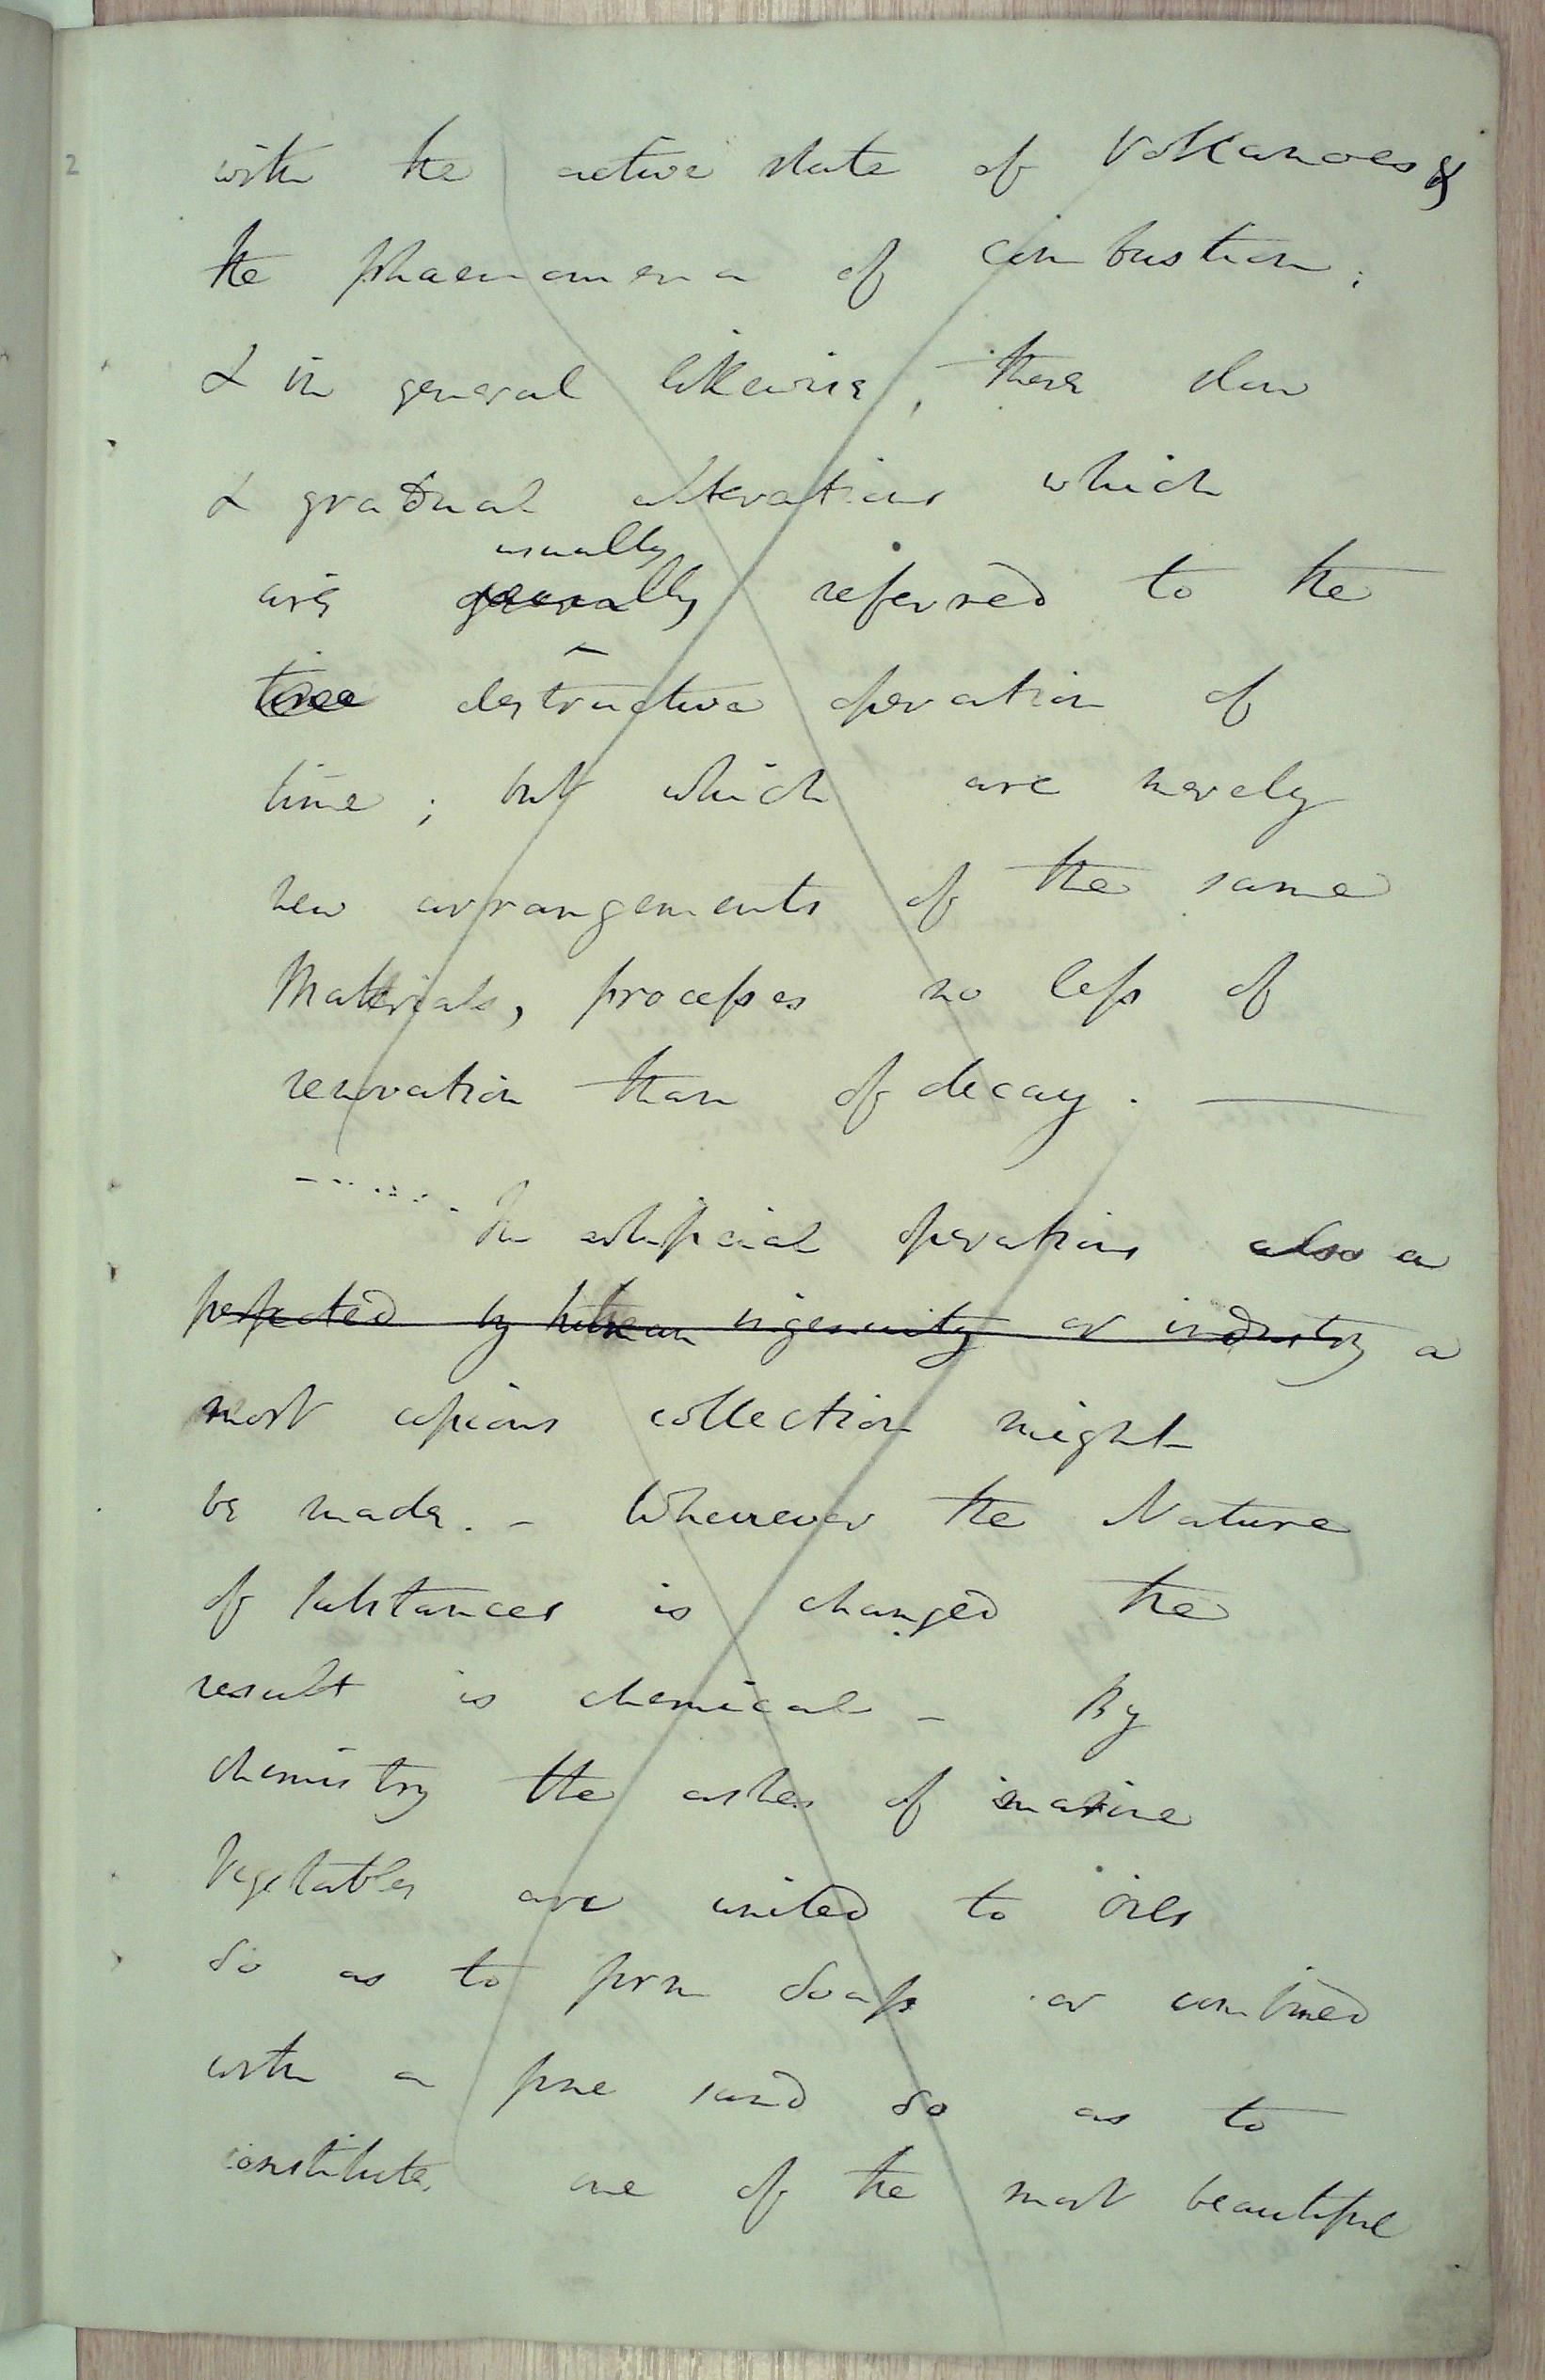 2
with the active state of Volcanoes &
the phaenomena of combustion;
& in general likewise, those slow
& gradual alterations which
usually
are generally referred to the
time destructive operation of
time; but which are merely
new arrangements of the same
Materials, processes no less of
renovation than of decay. —
In artificial operations also a
perfected by human ingenuity or industry a
most copious collection might
be made. - Whenever the Nature
of substances is changed the
result is chemical - By
chemistry the ashes of marine
Vegetables are united to oils
So as to form Soaps or combined
with a fine sand So as to
constitute one of the most beautiful